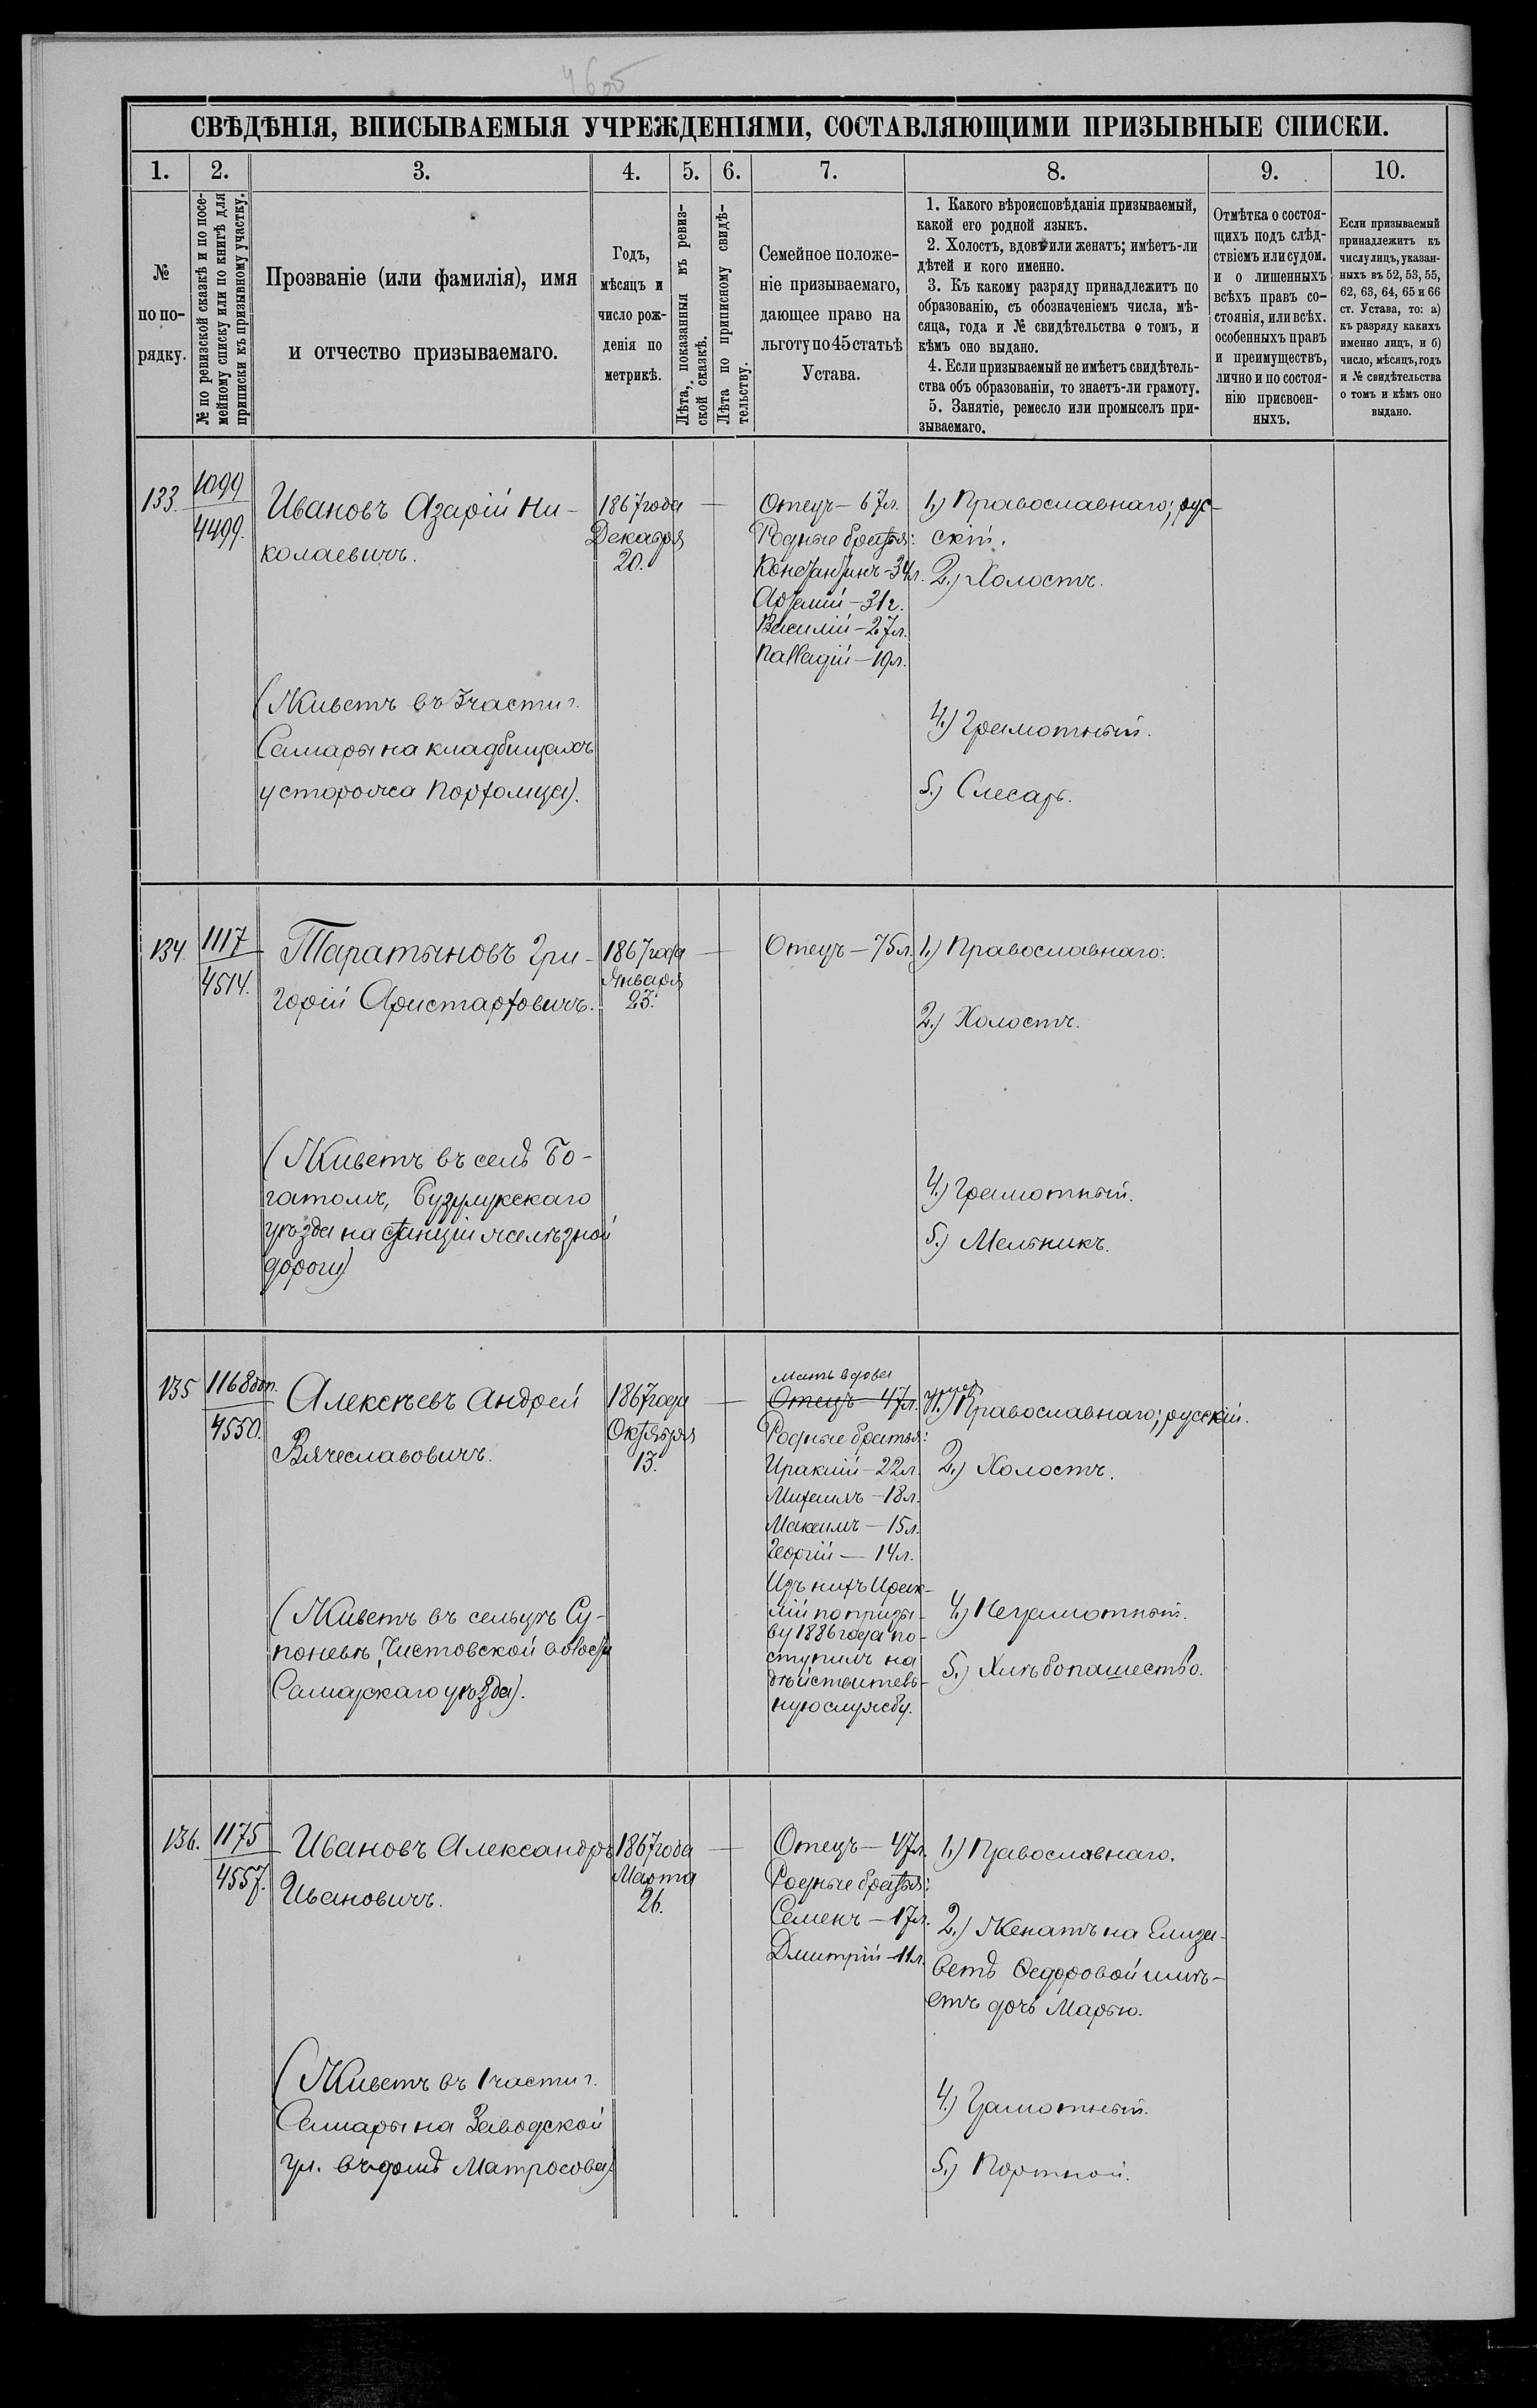 4605
СВѢДѢНІЯ, ВПИСЫВАЕМЫЯ УЧРЕЖДЕНІЯМИ, СОСТАВЛЯЮЩИМИ ПРИЗЫВНЫЕ СПИСКИ.
1.
2.
3.
4.
5.
6.
7.
8.
9.
10.
№
по по-
рядку.
№ по ревизской сказкѣ и по посе-
мейному списку или по книгѣ для
приписки къ призывному участку.
Прозваніе (или фамилія), имя
и отчество призываемаго.
Годъ,
мѣсяцъ и
число рож-
денія по
метрикѣ.
Лѣта, показанныя въ ревиз-
ской сказкѣ.
Лѣта по приписному свидѣ-
тельству.
Семейное положе-
ніе призываемаго,
дающее право на
льготу по 45 статьѣ
Устава.
1. Какого вѣроисповѣданія призываемый,
какой его родной языкъ.
2. Холостъ, вдовъ или женатъ; имѣетъ-ли
дѣтей и кого именно.
3. Къ какому разряду принадлежитъ по
образованію, съ обозначеніемъ числа, мѣ-
сяца, года и № свидѣтельства о томъ, и
кѣмъ оно выдано.
4. Если призываемый не имѣетъ свидѣтель-
ства объ образованіи, то знаетъ-ли грамоту.
5. Занятіе, ремесло или промыселъ при-
зываемаго.
Отмѣтка о состоя-
щихъ подъ слѣд-
ствіемъ или судом.
и о лишенныхъ
всѣхъ правъ со-
стоянія, или всѣх.
особенныхъ правъ
и преимуществъ,
лично и по состоя-
нію присвоен-
ныхъ.
Если призываемый
принадлежитъ къ
числу лицъ, указан-
ныхъ въ 52, 53, 55,
62, 63, 64, 65 и 66
ст. Устава, то: а)
къ разряду какихъ
именно лицъ, и б)
число, мѣсяцъ, годъ
и № свидѣтельства
о томъ и кѣмъ оно
выдано.
133.
1099
4499.
Ивановъ Азарій Ни-
колаевичъ.
(Живетъ въ 3 части г.
Самары на кладбищахъ
у сторожа Портомца).
1867 года
Декабря
20.
Отецъ — 67 л.
Родные братья:
Константинъ - 34 л.
Артемій — 31 г.
Василій — 27 л.
Палладій — 19 л.
1.) Православнаго; рус-
скій.
2.) Холостъ.
4.) Грамотный.
5.) Слесарь.
134.
1117
4514.
Таратыновъ Гри-
горій Аристарховичъ.
(Живетъ въ селѣ Бо-
гатомъ, Бузулукскаго
уѣзда на станціи желѣзной
дороги)
1867 года
Января
23.
Отецъ — 75 л.
1.) Православнаго:
2.) Холостъ.
4.) Грамотный.
5.) Мельникъ.
135
1168 доп.
4550.
Алексѣевъ Андрей
Вячеславовичъ.
(Живетъ въ сельцѣ Су-
поневѣ, Чистовской волости
Самарскаго уѣзда).
1867 года
Октября
13.
Мать вдова
Отецъ — 47 л.
Родные братья:
Ираклій — 22 л.
Михаилъ — 18 л.
Максимъ — 15 л.
Георгій — 14 л.
Изъ нихъ Ирак-
лій по призы-
ву 1886 года по-
ступилъ на
дѣйствитель-
ную службу.
1.) Православнаго; русскій.
2.) Холостъ.
4.) Неграмотный.
5.) Хлѣбопашество.
136.
1175
4557.
Ивановъ Александръ
Ивановичъ.
(Живетъ въ 1 части г.
Самары на Заводской
ул. въ домѣ Матросова).
1867 года
Марта
26.
Отецъ — 47 л.
Родные братья:
Семенъ — 17 л.
Дмитрій — 11 л.
1.) Православнаго.
2.) Женатъ на Елиза-
ветѣ Ѳедоровой имѣ-
етъ дочь Марью.
4.) Грамотный.
5.) Портной.